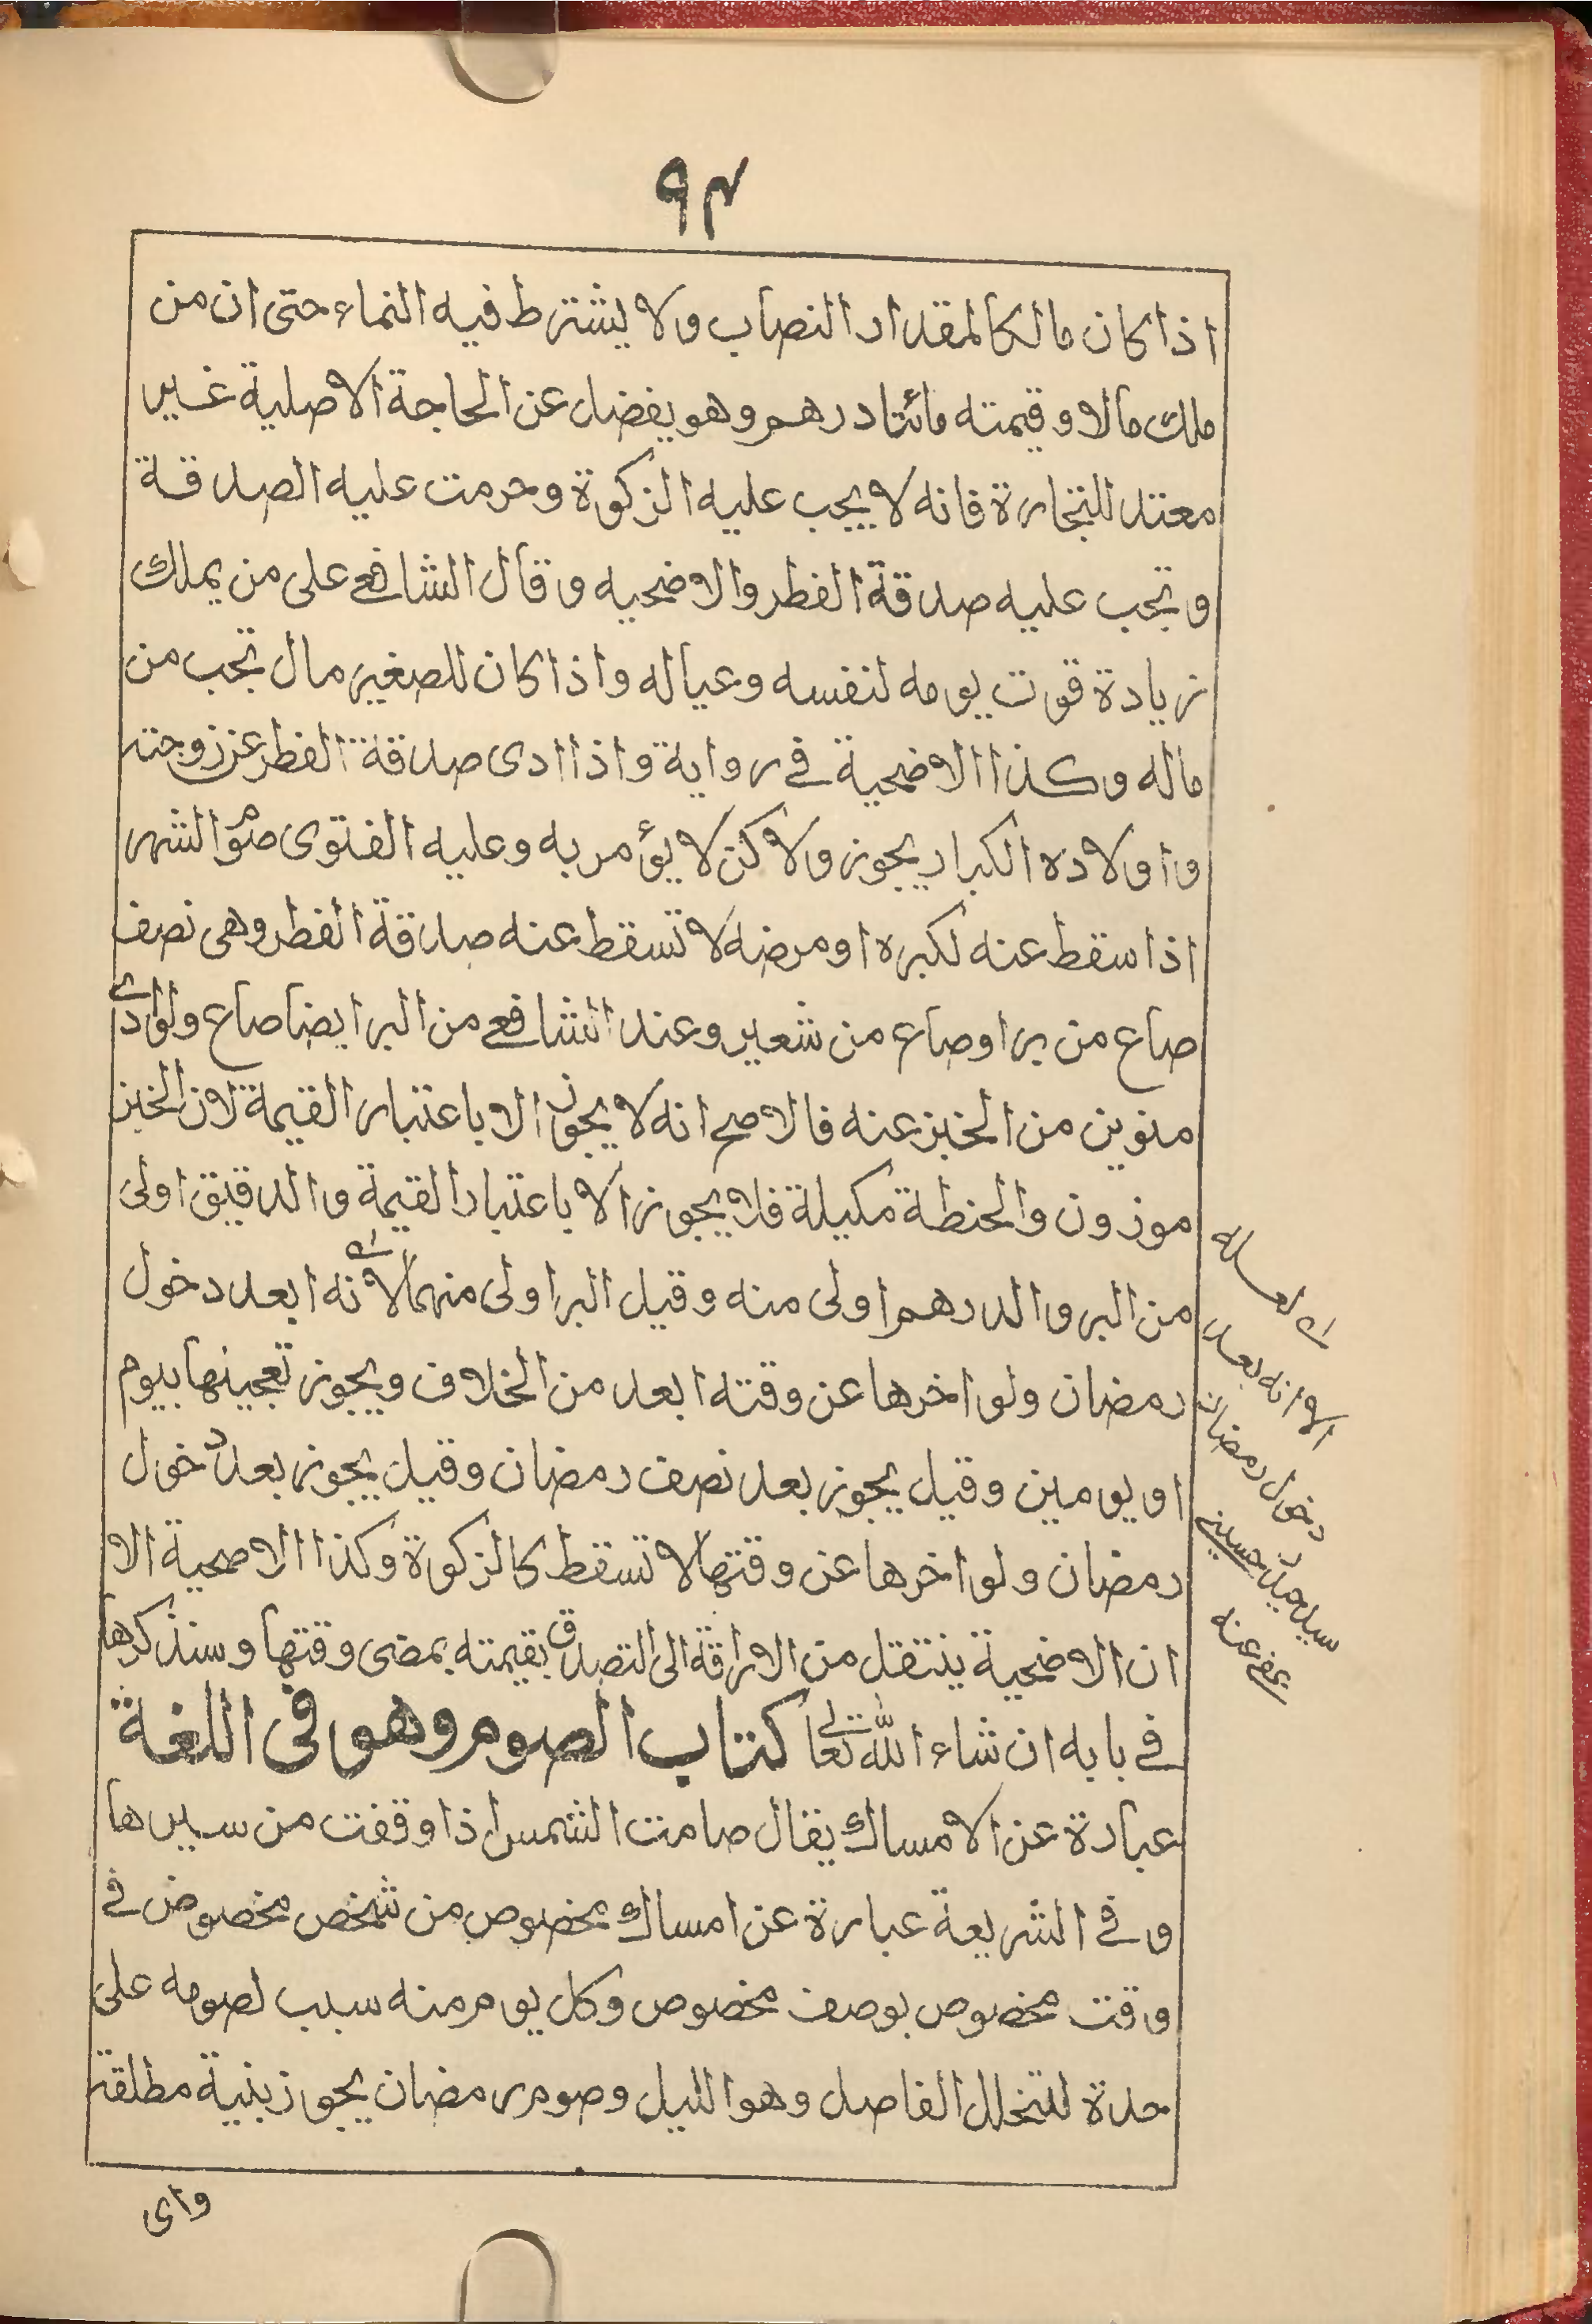 ٩٣
اذا كان مالكا لمقدار النصاب ولا يشترط فيه النماء حتى ان من
ملك مالا وقيمته مائتا درهم وهو يفضل عن الحاجة الاصلية غير
معتد للتجارة فانه لا يجب عليه الزكوة وحرمت عليه الصدقة
وتجب عليه صدقة الفطر والاضحيه وقال الشافعے على من يملك
زيادة قوت يومه لنفسه وعياله واذا كان للصغير مال تجب من
ماله وكذا الاضحية فے رواية واذا ادى صدقة الفطر عن زوجته
واولاده الكبار يجوز ولاكن لا يؤمر به وعليه الفتوى صوم الشهر
اذا سقط عنه لكبره او مرضه لا تسقط عنه صدقة الفطر وهى نصف
صاع من بر او صاع من شعير وعند الشافعے من البر ايضا صاع ولو ادے
منوين من الخبز عنه فالاصح انه لا يجوز الا باعتبار القيمة لان الخبز
موزون والحنطة مكيلة فلا يجوز الا باعتبار القيمة والدقيق اولى
من البر والدرهم اولى منه وقيل البر اولى منهما لانه ابعد دخول
رمضان ولو اخرها عن وقته ابعد من الخلاف ويجوز تعجيلها بيوم
او يومين وقيل يجوز بعد نصف رمضان وقيل يجوز بعد دخول
رمضان ولو اخرها عن وقتها لا تسقط كالزكوة وكذا الاضحية الا
ان الاضحية ينتقل من الاراقة الى التصدق بقيمته بمضى وقتها وسنذكرها
فے بابه ان شاء الله تعالے كتاب الصوم وهو فى اللغة
عبادة عن الامساك يقال صامت الشمس اذا وقفت من سيرها
وفے الشريعة عبارة عن امساك مخصوص من شخص مخصوص فے
وقت مخصوص بوصف مخصوص وكل يوم منه سبب لصومه على
حدة للتخلل الفاصل وهو الليل وصوم رمضان يجوز بنية مطلقة
واى
الا انه بعد
دخول رمضان
سيد حسينے
عفے عنه